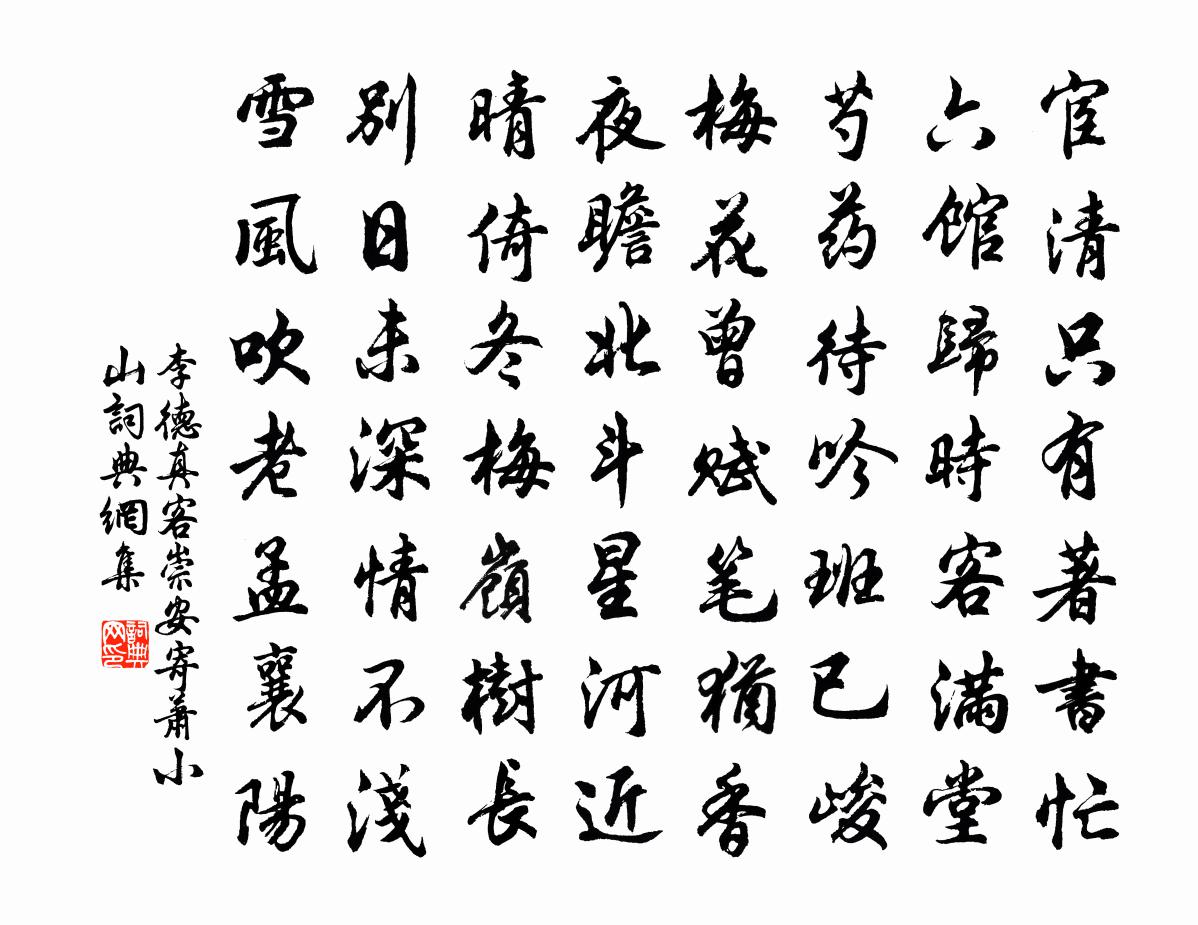 宦清只有著書忙
六館歸時客滿堂
芍药待吟班已峻
梅花曾赋笔猶香
夜瞻北斗星河近
晴倚冬梅嶺樹長
別日未深情不淺
雪風吹老孟襄陽
李德真客崇安寄蕭小
山詞典網集
詞典网印